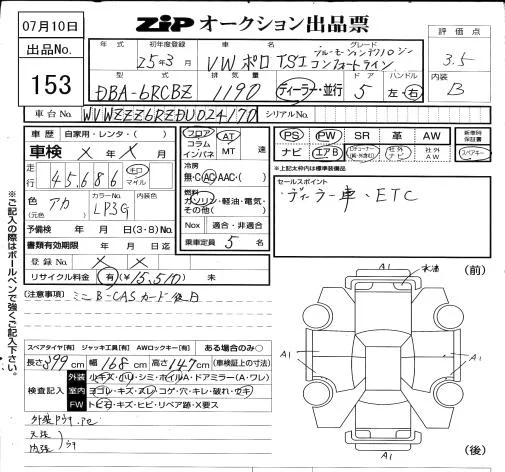 07月10日
ZiP オークション出品票
出品No.
153
年式 初年度登録 車名 グレード
25年3月 VW ポロ TSI ブルーモーションテクノロジー コンフォートライン
評価点
3.5
型式 排気量 ドア ハンドル
DBA-6RCBZ 1190 ディーラー・並行 5 左・右
内装
B
車台No. WVWZZZ6RZDU024170 シリアルNo.
車歴 自家用・レンタ・( )
車検 × 年 × 月
走行 45686 キロ マイル
色(元色) アカ カラーNo. LP3G 内装色
予備検 年 月 日(3・8)No.
書類有効期限 年 月 日迄
登録No. × ×
リサイクル料金 有(¥15,510) 未
フロア コラム インパネ AT MT 速
冷房
無・C・AC・AAC・( )
燃料
ガソリン・軽油・電気・その他( )
Nox 適合・非適合
乗車定員 5 名
PS PW SR 革 AW
ナビ エアB 社外ナビ 社外AW
新車時保証書
スペアキー
*上記太枠内は標準装備品
セールスポイント
ディーラー車、ETC
※ご記入の際はボールペンで強くご記入下さい。
(注意事項) ミニB-CASカード後日
スペアタイヤ[有] ジャッキ工具[有] AWロックキー[有] ある場合のみ○
長さ 399cm 幅 168cm 高さ 147cm (車検証上の寸法)
検査記入
外装 小キズ・凹・シミ・ホイルA・ドアミラー(A・ワレ)
室内 ヨゴレ・キズ・スレ・コゲ・穴・キレ・破れ・ウキ
FW トビ石・キズ・ヒビ・リペア跡・X要ス
天張
内張
(前)
A1
A1
A1
A1
(後)